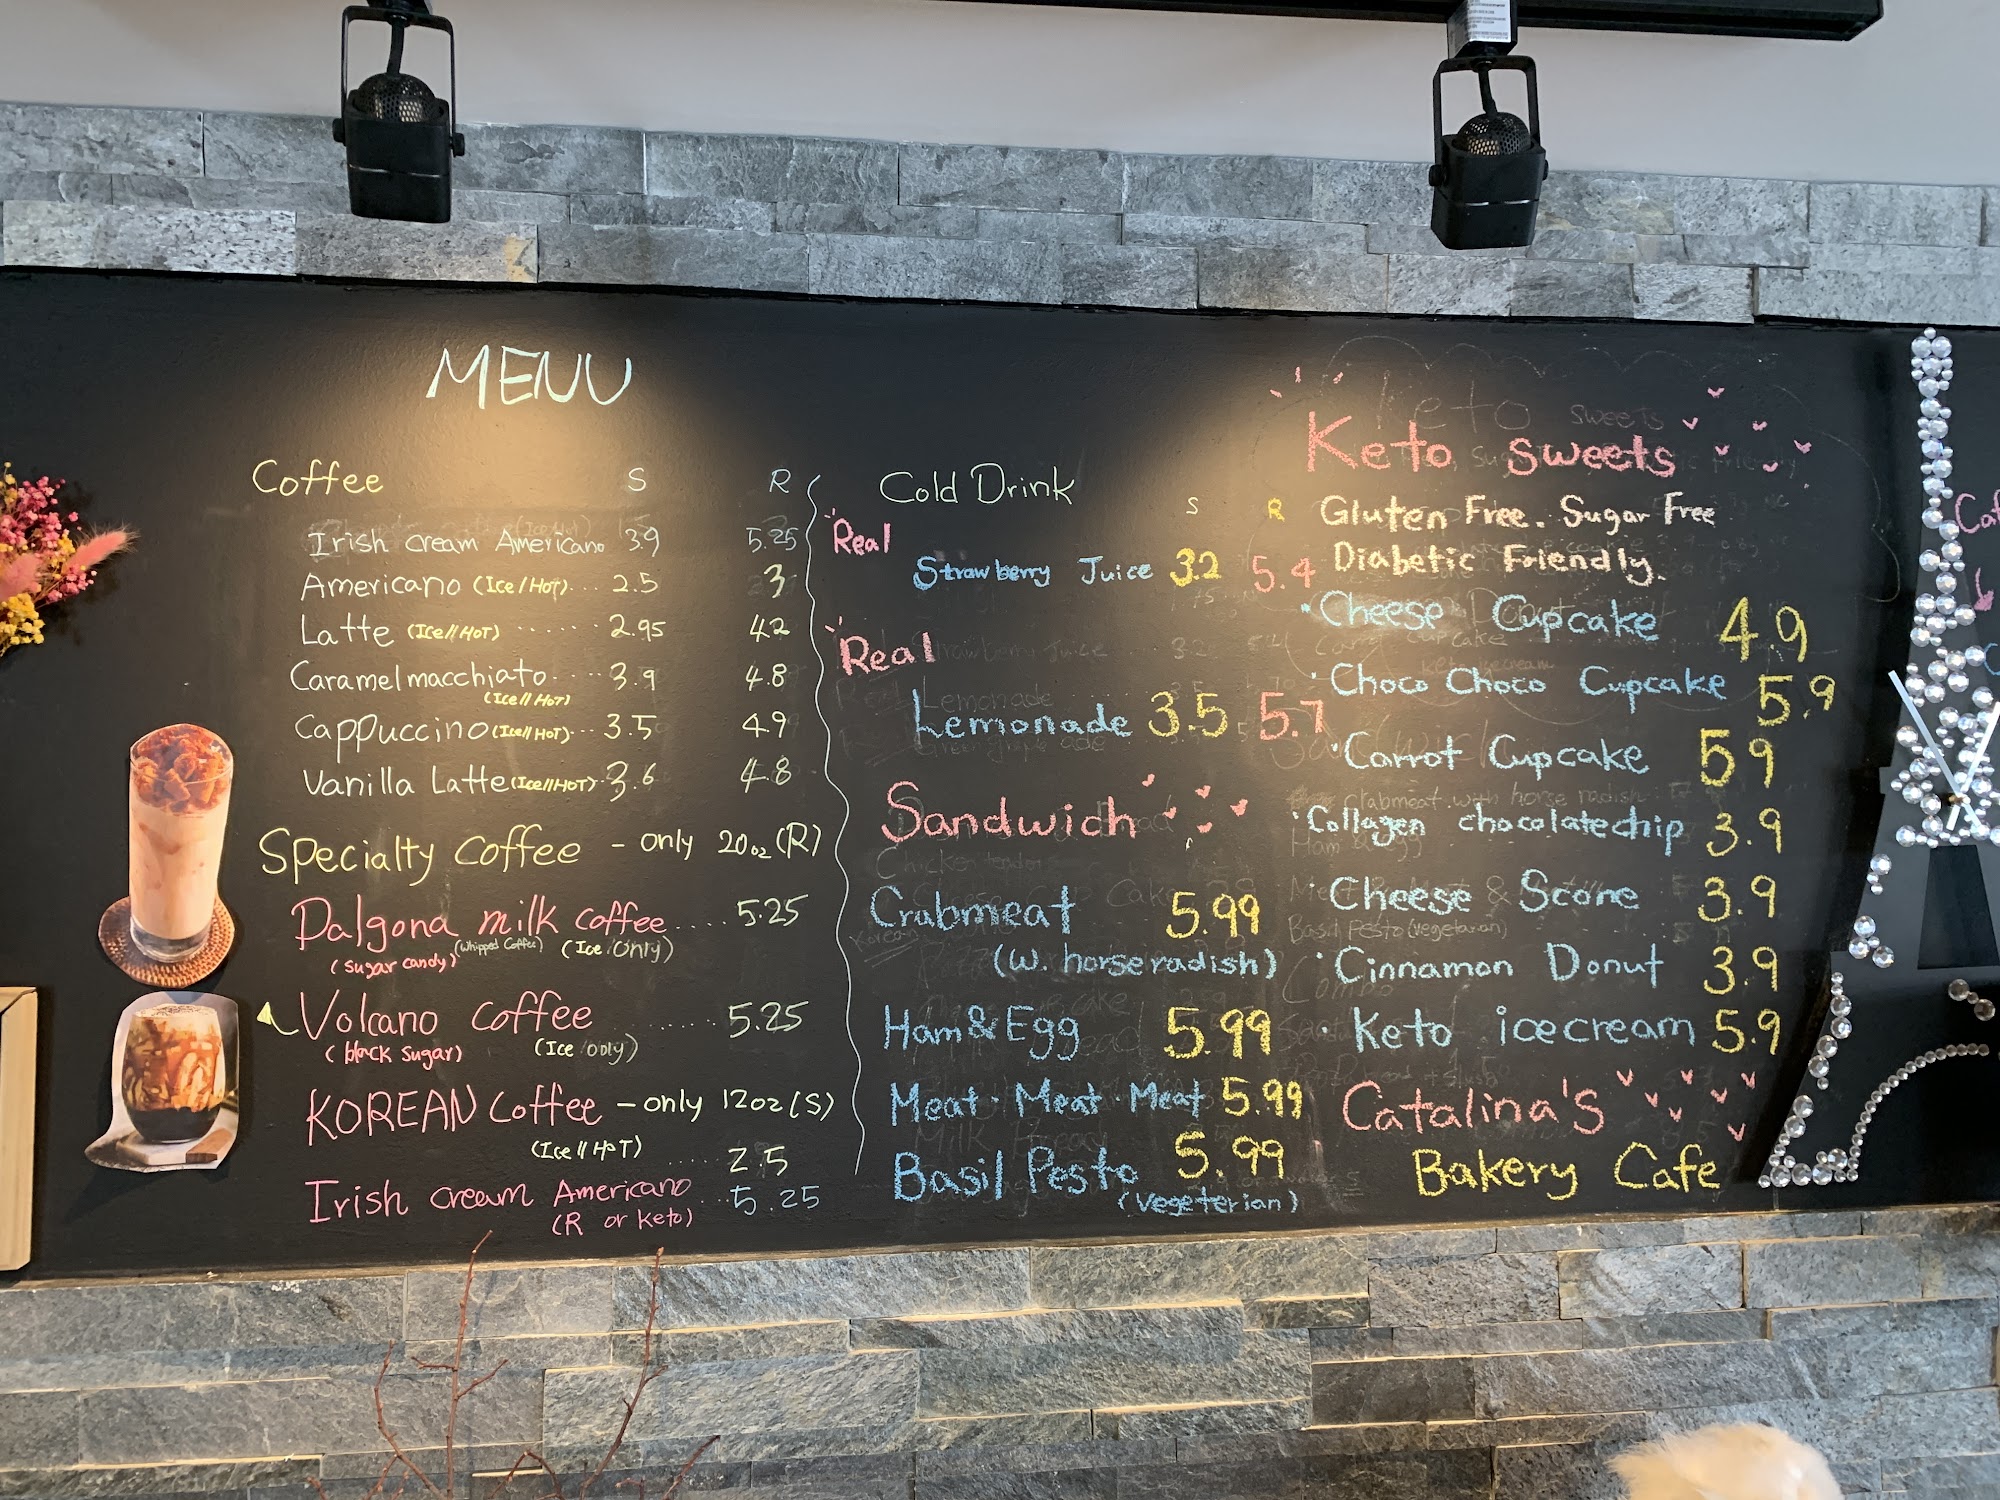 MENU
Coffee S R
Irish cream Americano 3.9 5.25
Americano (Ice/HOT)... 2.5 3
Latte (Ice//HOT) ...... 2.95 4.2
Caramel macchiato.... 3.9 4.8
(Ice//HOT)
Cappuccino (Ice//HOT)... 3.5 4.9
Vanilla Latte (Ice//HOT). 3.6 4.8
Specialty coffee - only 20oz (R)
Dalgona milk coffee.... 5.25
(sugar candy) (Whipped Coffee) (Ice only)
Volcano coffee ...... 5.25
(black sugar) (Ice only)
KOREAN coffee - only 12oz (S)
(Ice//HOT) ..... 2.5
Irish cream Americano... 5.25
(R or keto)
Cold Drink S R
Real
Strawberry Juice 3.2 5.4
Real
Lemonade 3.5 5.7
Sandwich
Crabmeat 5.99
(w. horseradish)
Ham & Egg 5.99
Meat · Meat · Meat 5.99
Basil Pesto 5.99
(vegeterian)
Keto sweets
Gluten Free. Sugar Free
Diabetic Friendly.
· Cheese Cupcake 4.9
· Choco Choco Cupcake 5.9
· Carrot Cupcake 5.9
· Collagen chocolatechip 3.9
· Cheese Scone 3.9
· Cinnamon Donut 3.9
· Keto icecream 5.9
Catalina's
Bakery Cafe